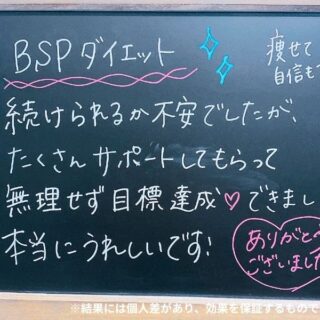 BSPダイエット
痩せて
自信も
続けられるか不安でしたが、
たくさんサポートしてもらって
無理せず目標達成♡できまし
本当にうれしいです!
ありがとう
ございました
※結果には個人差があり、効果を保証するもので